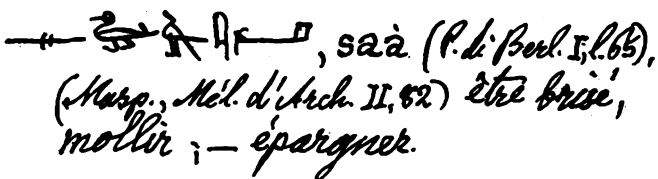 , saà (P. di Berl. I, l. 65),
(Masp., Mél. d'Arch. II, 82) être brisé,
mollir ; — épargner.